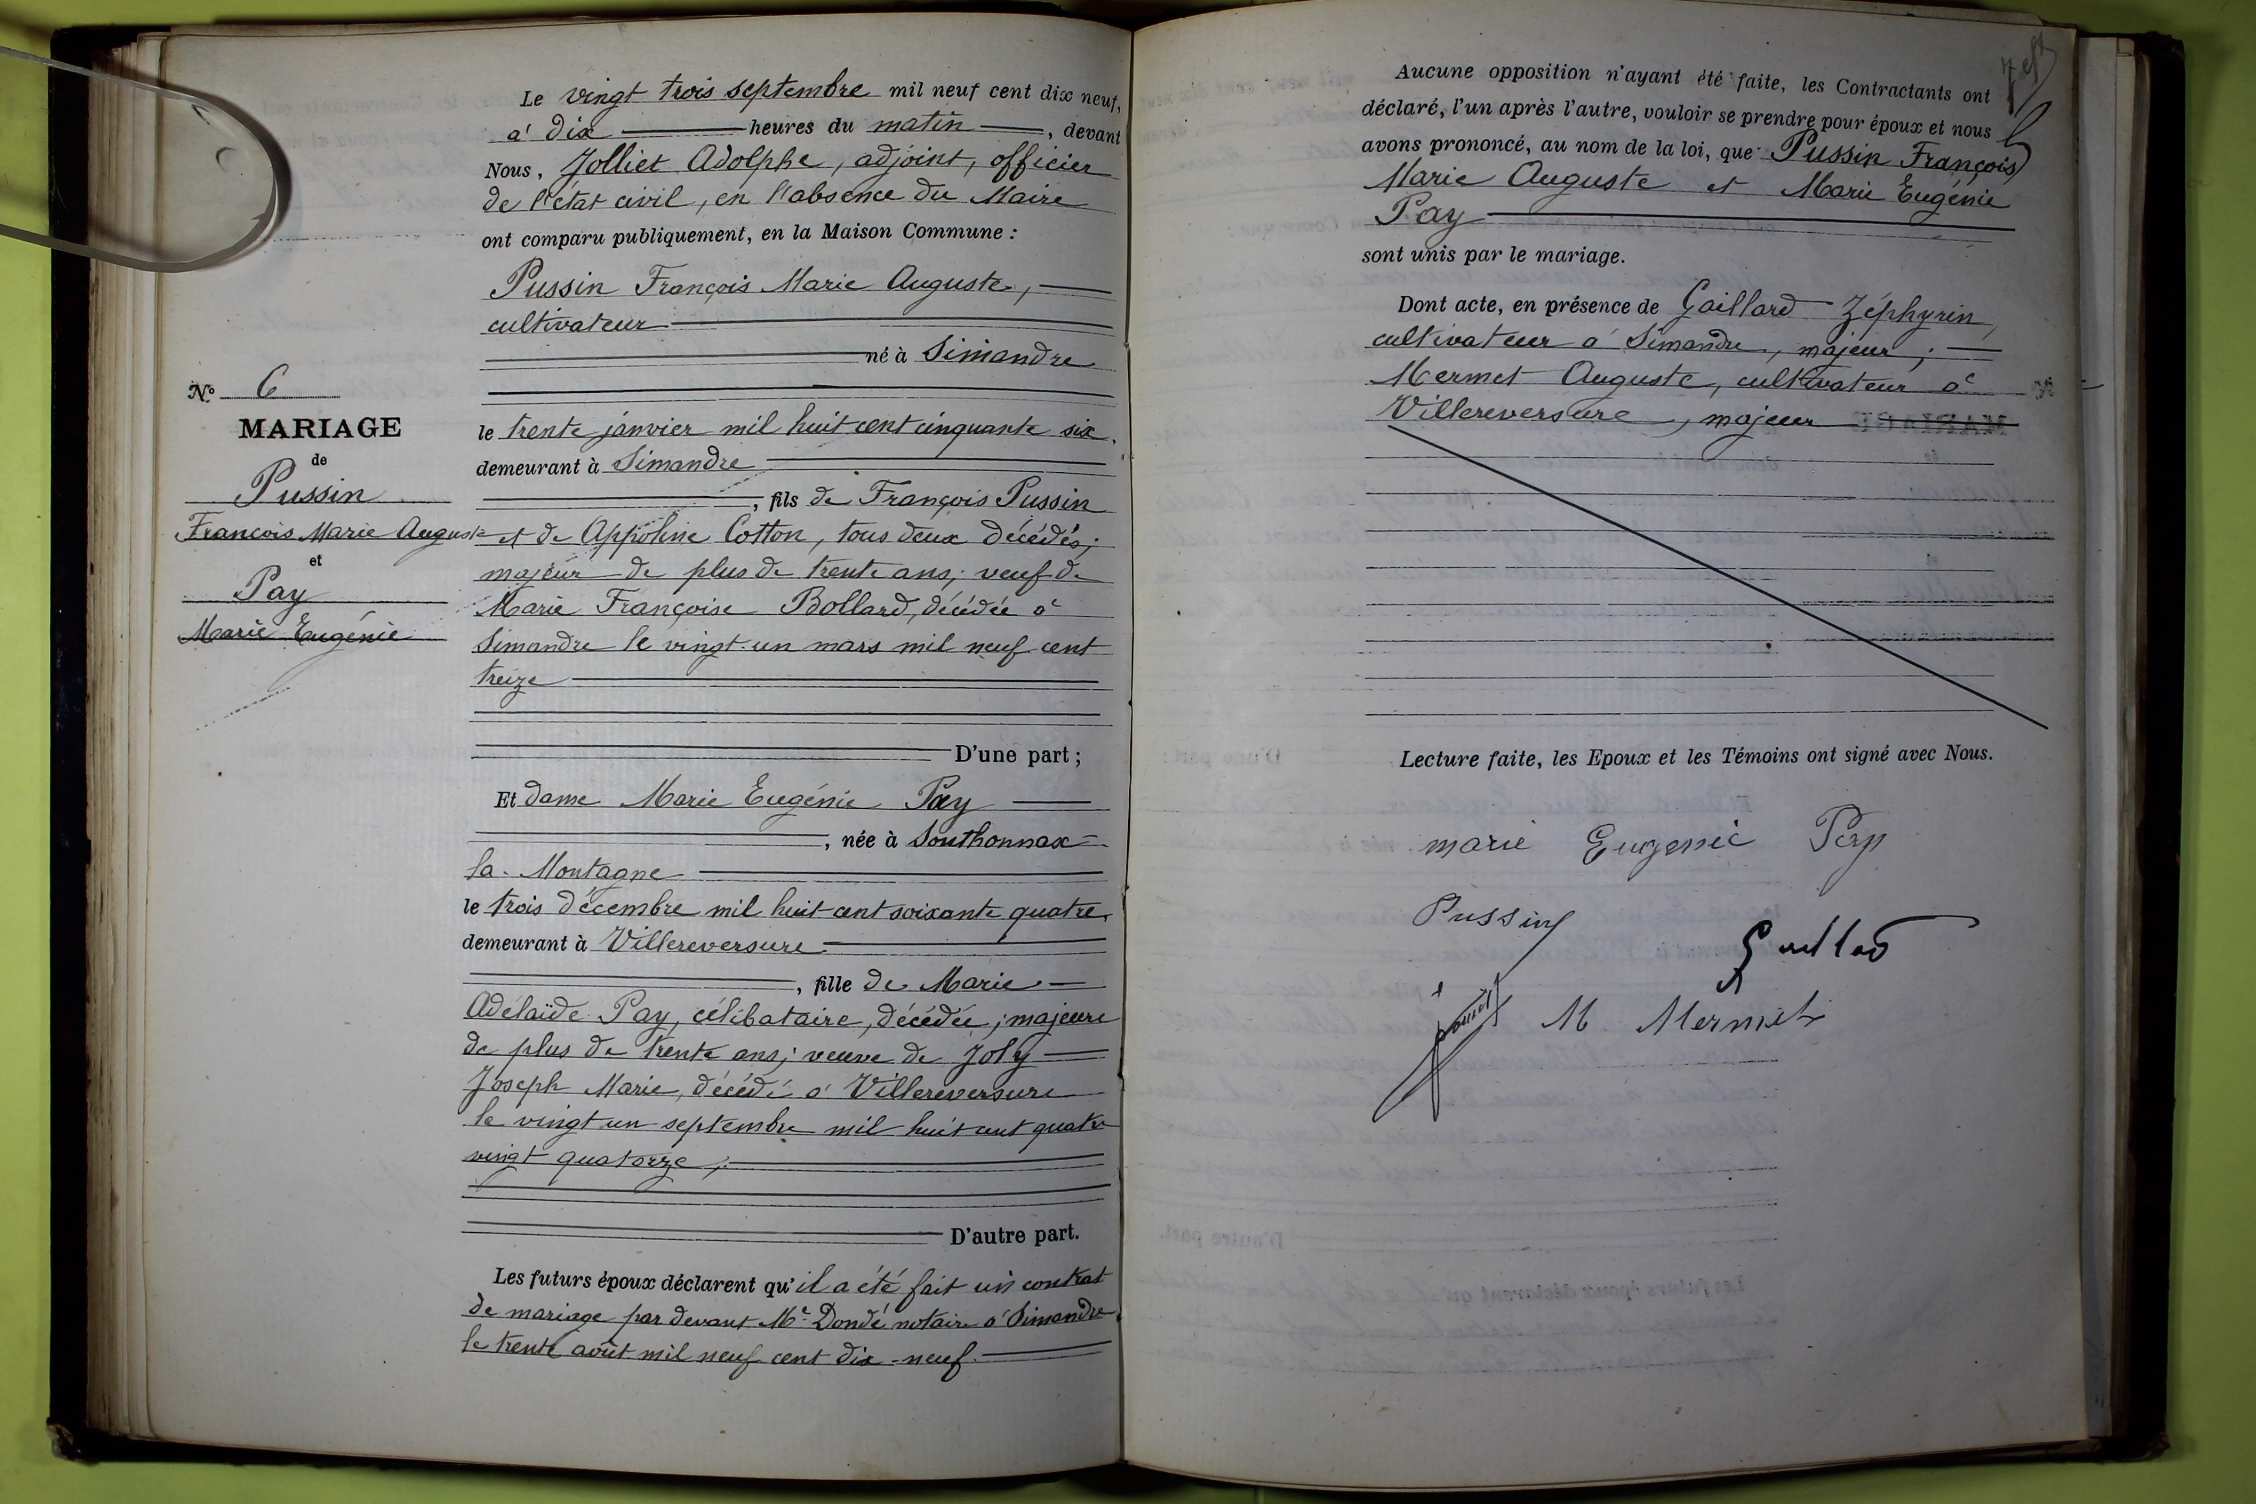 Le vingt trois septembre mil neuf cent dix neuf,
à dix heures du matin, devant
Nous, Jolliet Adolphe, adjoint, officier
de l'état civil, en l'absence du Maire
ont comparu publiquement, en la Maison Commune :
Pussin François Marie Auguste,
cultivateur
né à Simandre
le trente janvier mil huit cent cinquante six,
demeurant à Simandre
, fils de François Pussin
et de Appoline Cotton, tous deux décédés;
majeur de plus de trente ans; veuf de
Marie Françoise Bollard, décédée à
Simandre le vingt un mars mil neuf cent
treize
D'une part ;
Et dame Marie Eugénie Pay
, née à Sonthonnax-
la-Montagne
le trois décembre mil huit cent soixante quatre,
demeurant à Villereversure
, fille de Marie
Adélaïde Pay, célibataire, décédée; majeure
de plus de trente ans; veuve de Joly
Joseph Marie, décédé à Villereversure
le vingt un septembre mil huit cent quatre
vingt quatorze;
D'autre part.
Les futurs époux déclarent qu'il a été fait un contrat
de mariage par devant Me Dondé notaire à Simandre
le trente août mil neuf cent dix-neuf.
No 6
MARIAGE
de
Pussin
François Marie Auguste
et
Pay
Marie Eugénie
Aucune opposition n'ayant été faite, les Contractants ont
déclaré, l'un après l'autre, vouloir se prendre pour époux et nous
avons prononcé, au nom de la loi, que Pussin François
Marie Auguste et Marie Eugénie
Pay
sont unis par le mariage.
Dont acte, en présence de Gaillard Zéphyrin,
cultivateur à Simandre, majeur;
Mermet Auguste, cultivateur à
Villereversure, majeur
Lecture faite, les Epoux et les Témoins ont signé avec Nous.
marie Eugenie Pay
Pussin
Gaillard
M Mermet